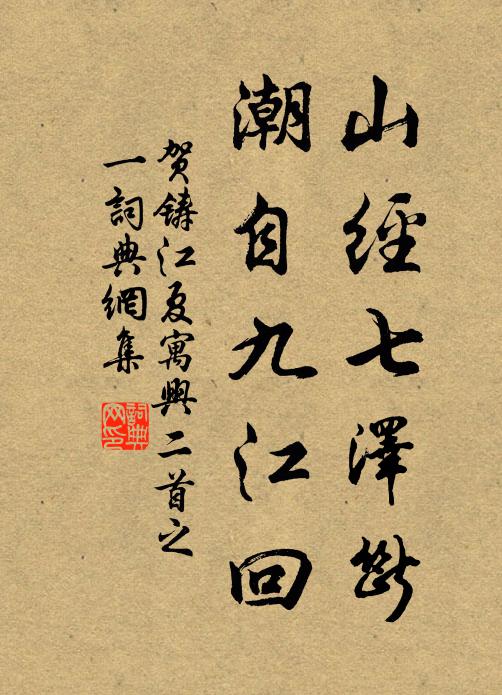 山經七澤斷
潮自九江回
賀鑄江夏寓興二首之
一詞典網集
詞典網印